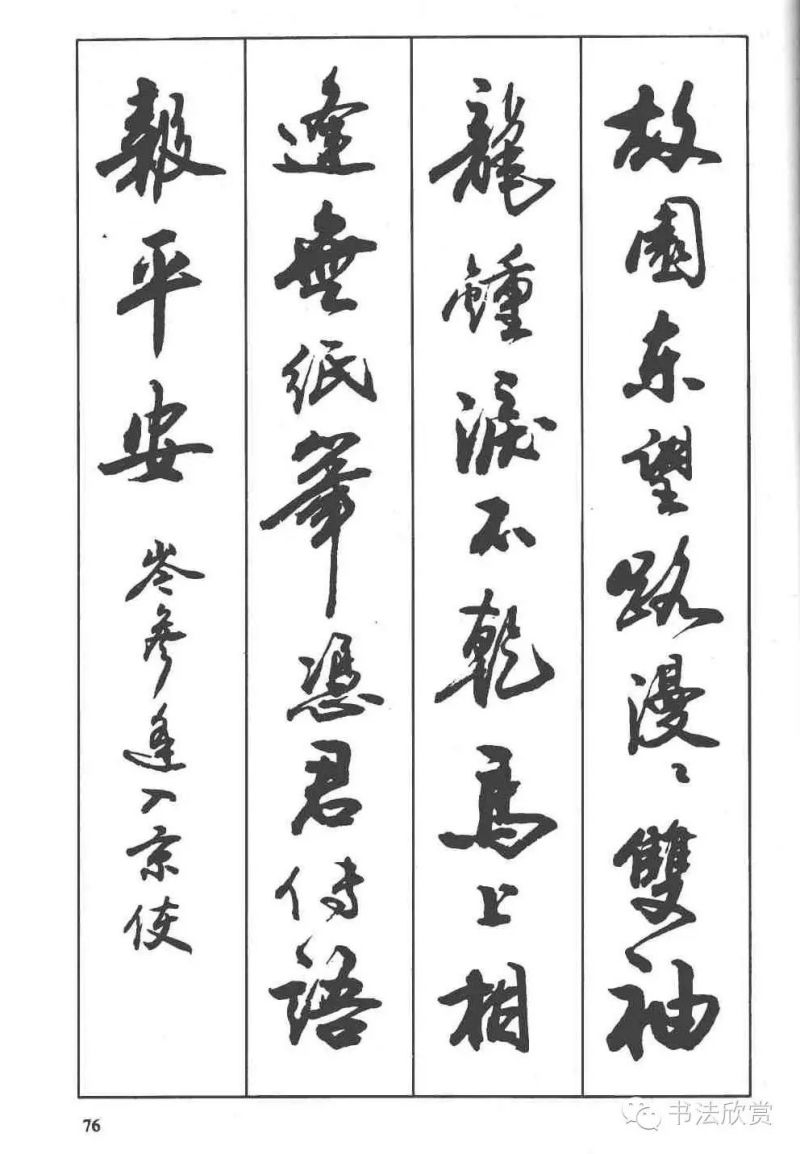 故園东望路漫〻雙袖
龍鍾淚不乾馬上相
逢無紙筆憑君传語
報平安 岑參逢入京使
76
书法欣赏